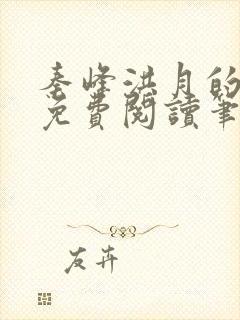 秦峰洪月的
免費閱讀筆
友卉